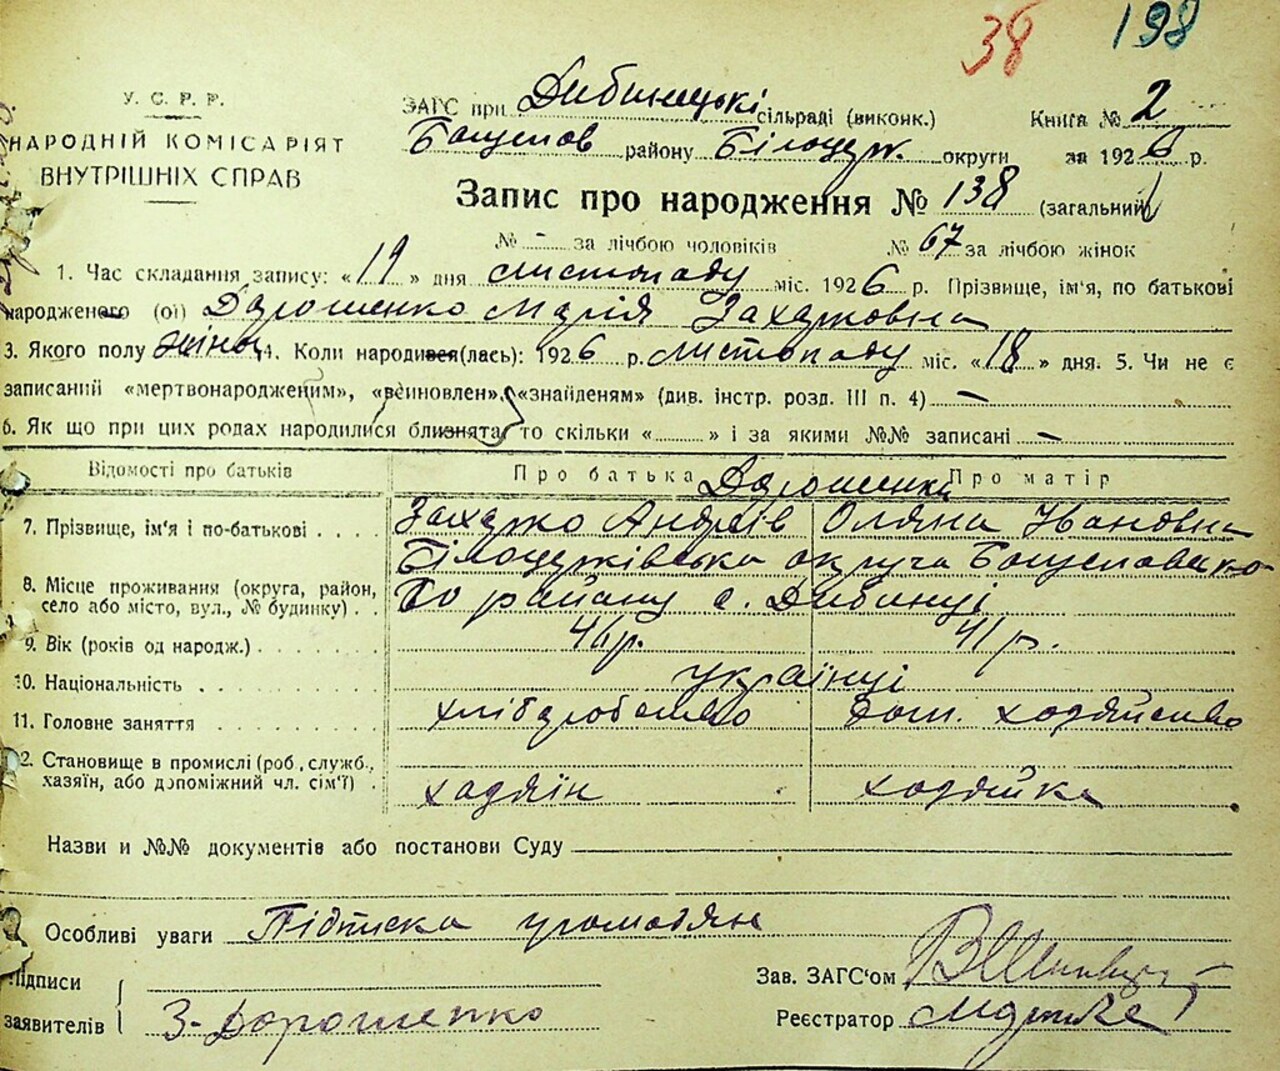 38 198
У.С.Р.Р.
НАРОДНІЙ КОМІСАРІЯТ
ВНУТРІШНІХ СПРАВ
ЗАГС при Дибинецькі сільраді (виконк.) Книга № 2
Богуслов району Білоцерк. округи за 1926 р.
Запис про народження № 138 (загальний)
№ - за лічбою чоловіків № 67 за лічбою жінок
1. Час складання запису: « 19 » дня листопаду міс. 1926 р. Прізвище, ім'я, по батькові
народженого (ої) Дарошенко Марія Захарковна
3. Якого полу жіноч 4. Коли народився(лась): 1926 р. листопаду міс. « 18 » дня. 5. Чи не є
записаний «мертвонародженим», «всиновлен», «знайденям» (див. інстр. розд. III п. 4) —
6. Як що при цих родах народилися близнята, то скільки «........» і за якими №№ записані —
Відомості про батьків Про батька Дарошенки Про матір
7. Прізвище, ім'я і по-батькові . . . . Захарко Андріїв Оляна Івановна
Білоцерківська округа Богуславско
8. Місце проживання (округа, район, го району с. Дибинці
село або місто, вул., № будинку) . .
9. Вік (років од народж.) . . . . . . . 46 р. 41 р.
10. Національність . . . . . . . . . . українці
11. Головне заняття . . . . . . . . . хліборобство дом. хозяйство
12. Становище в промислі (роб., служб.,
хазяїн, або допоміжний чл. сім'ї) . хазяін хозяйка
Назви и №№ документів або постанови Суду
Особливі уваги Підписка громадян
Підписи Зав. ЗАГС'ом
заявителів З. Дорошенко Реєстратор